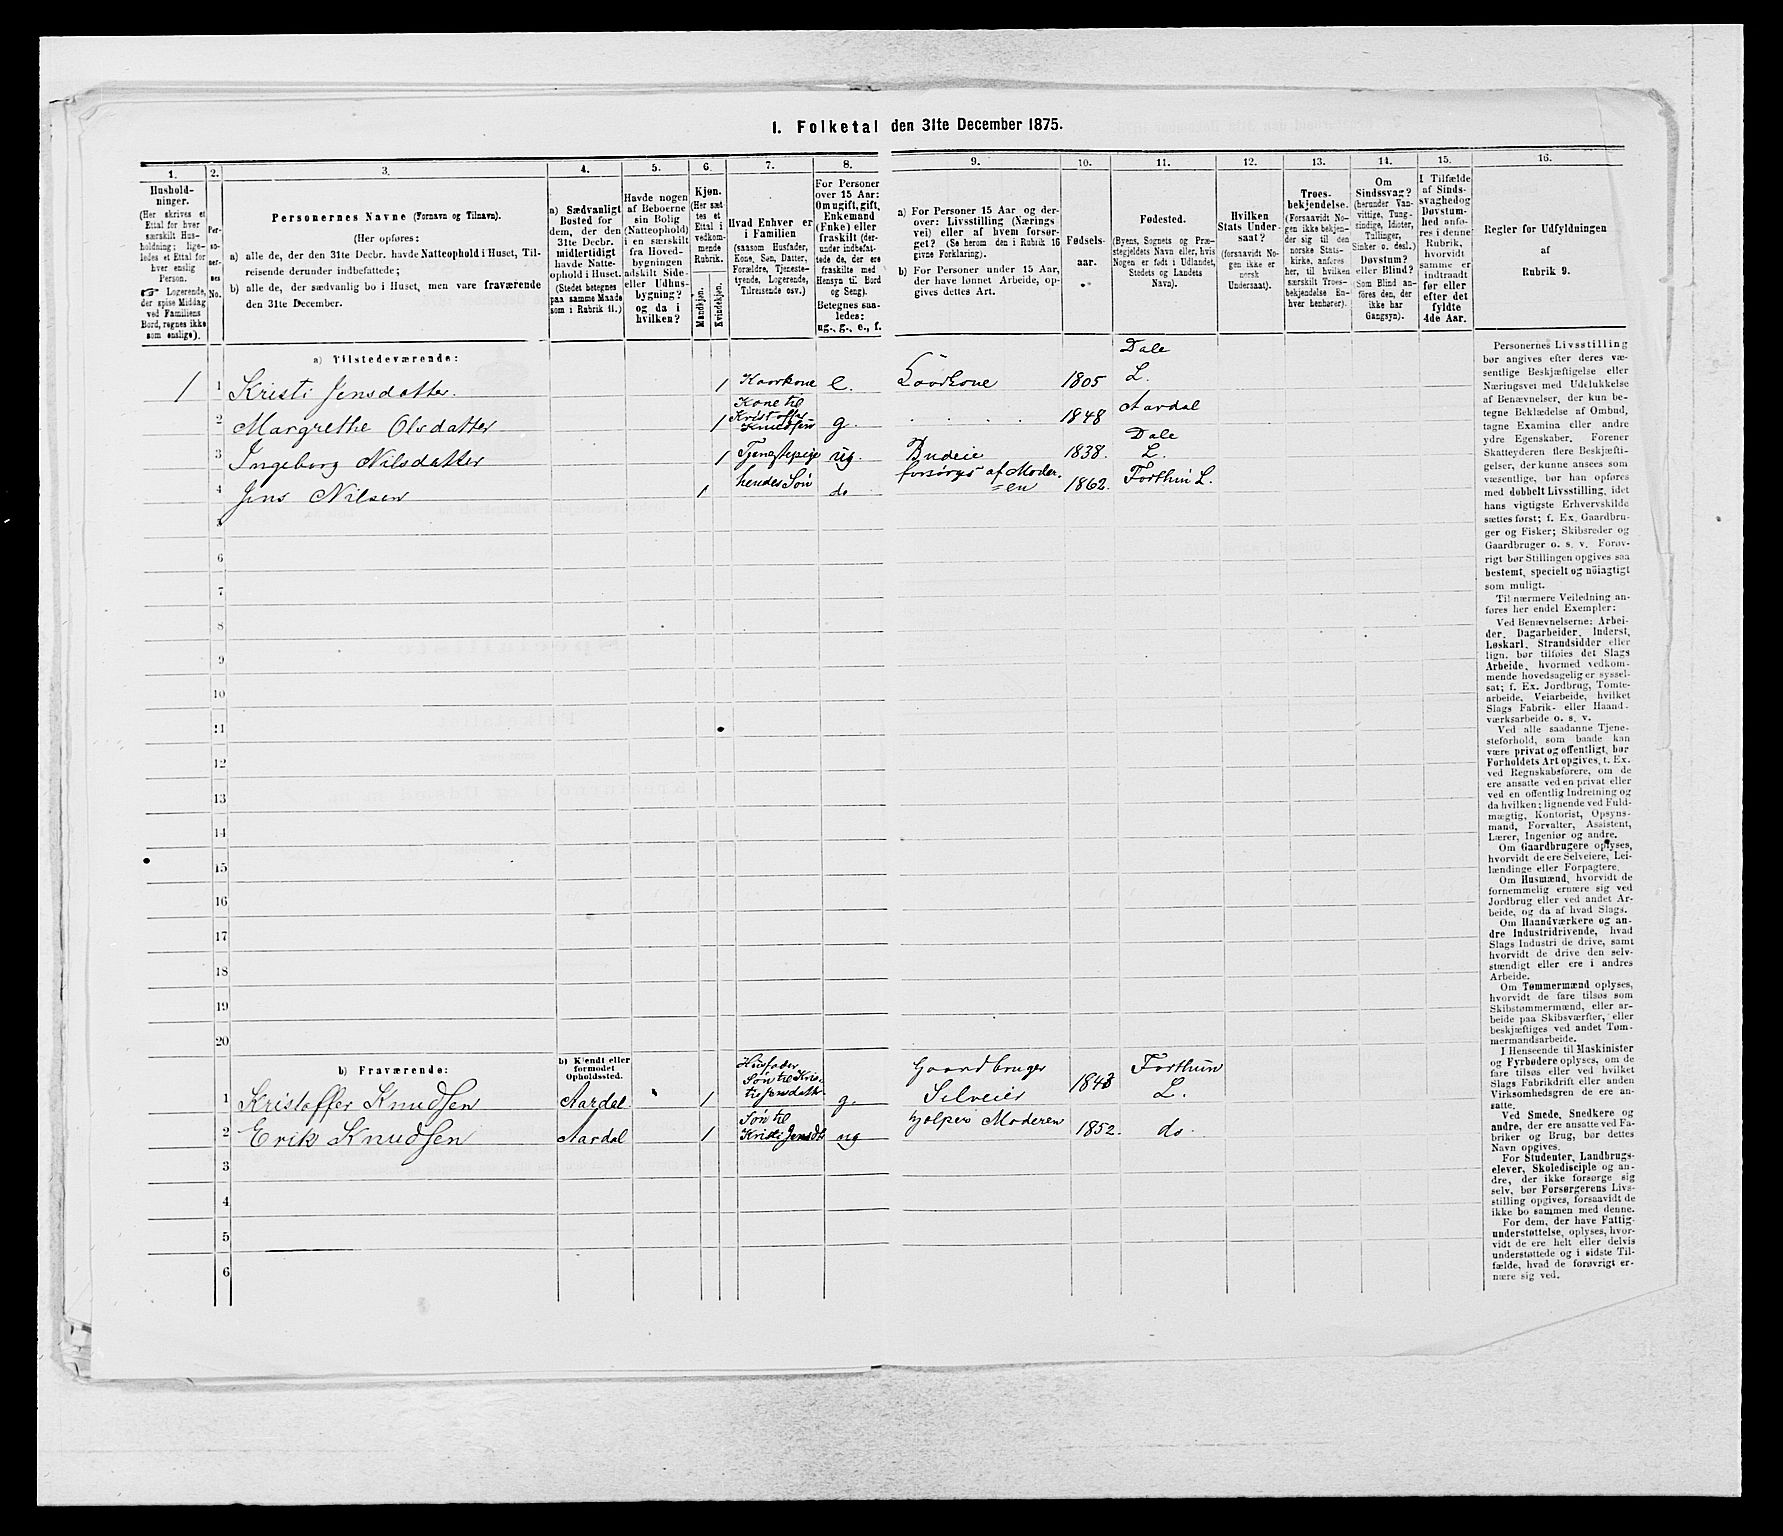 I. Folketal den 31te December 1875.
1. 2. 3. 4. 5. 6. 7. 8. 9. 10. 11. 12. 13. 14. 15. 16.
Hushold-
ninger.
(Her skrives et
Ettal for hver
særskilt Hus-
holdning; lige-
ledes et Ettal for
hver enslig
Person.
☞ Logerende,
der spise Middag
ved Familiens
Bord, regnes ikke
som enslige).
Per-
so-
ner-
nes
No.
Personernes Navne (Fornavn og Tilnavn).
(Her opføres:
a) alle de, der den 31te Decbr. havde Natteophold i Huset, Til-
reisende derunder indbefattede;
b) alle de, der sædvanlig bo i Huset, men vare fraværende
den 31te December.
a) Sædvanligt
Bosted for
dem, der den
31te Decbr.
midlertidigt
havde Natte-
ophold i Huset.
(Stedet betegnes
paa samme Maade
som i Rubrik 11.)
Havde nogen
af Beboerne
sin Bolig
(Natteophold)
i en særskilt
fra Hoved-
bygningen
adskilt Side-
eller Udhus-
bygning?
og da i
hvilken?
Kjøn.
(Her sæt-
tes et
Ettal i
vedkom-
mende
Rubrik.
Mandkjøn.
Kvindekjøn.
Hvad Enhver er
i Familien
(saasom Husfader,
Kone, Søn, Datter,
Forældre, Tjeneste-
tyende, Logerende,
Tilreisende osv.)
For Personer
over 15 Aar:
Om ugift, gift,
Enkemand
(Enke) eller
fraskilt (der-
under indbefat-
tede de, der ere
fraskilte med
Hensyn til Bord
og Seng).
Betegnes saa-
ledes:
ug., g., e., f.
a) For Personer 15 Aar og der-
over: Livsstilling (Nærings
vei) eller af hvem forsør-
get? (Se herom den i Rubrik 16
givne Forklaring).
b) For Personer under 15 Aar,
der have lønnet Arbeide, op-
gives dettes Art.
Fødsels-
aar.
Fødested.
(Byens, Sognets og Præ-
stegjeldets Navn eller, hvis
Nogen er født i Udlandet,
Stedets og Landets
Navn).
Hvilken
Stats Under-
saat?
(forsaavidt No-
gen ikke er
norsk
Undersaat).
Troes-
bekjendelse.
(Forsaavidt No-
gen ikke bekjen-
der sig til den
norske Stats-
kirke, anføres
her, til hvilken
særskilt Troes-
bekjendelse En-
hver henhører).
Om
Sindssvag?
(herunder Van-
vittige, Tung-
sindige, Idioter,
Tullinger,
Sinker o. desl.)
Døvstum?
eller Blind?
(Som Blind an-
føres den, der
ikke har
Gangsyn).
I Tilfælde
af Sinds-
svaghed og
Døvstum-
hed anfø-
res i denne
Rubrik,
hvorvidt
samme er
indtraadt
før eller
efter det
fyldte
4de Aar.
Regler for Udfyldningen
af
Rubrik 9.
a) Tilstedeværende:
1 1 Kristi Jensdatter. 1 Kaarkone e. Kaarkone 1805 Dale L.
2 Margrethe Olsdatter 1 Kone til Kristoffer Knudsen g. 1848 Aardal
3 Ingeborg Nilsdatter 1 Tjenestepige ug. Budeie 1838. Dale L.
4 Jens Nilsen 1 hendes Søn do forsørges af Moder=en 1862. Forthun L.
5
6
7
8
9
10
11
12
13
14
15
16
17
18
19
20
b) Fraværende:
b) Kjendt eller
formodet
Opholdssted.
1 Kristoffer Knudsen Aardal. 1 Husfader Søn til Kristi Jensdatter g. Gaardbruger Selveier 1843 Forthun L.
2 Erik Knudsen Aardal 1 Søn til Kristi Jensdt ug hjelper Moderen 1852. do.
3
4
5
6
Personernes Livsstilling
bør angives efter deres væ-
sentlige Beskjæftigelse eller
Næringsvei med Udelukkelse
af Benævnelser, der kun be-
tegne Beklædelse af Ombud,
tagne Examina eller andre
ydre Egenskaber. Forener
Skatteyderen flere Beskjæfti-
gelser, der kunne ansees som
væsentlige, bør han opføres
med dobbelt Livsstilling, idet
hans vigtigste Erhvervskilde
sættes først; f. Ex. Gaardbru-
ger og Fisker; Skibsreder og
Gaardbruger o. s. v. Forøv-
rigt bør Stillingen opgives saa
bestemt, specielt og nöiagtigt
som muligt.
Til nærmere Veiledning an-
føres her endel Exempler:
Ved Benævnelserne: Arbei-
der, Dagarbeider, Inderst,
Løskarl, Strandsidder eller
lign. bør tilføies det Slags
Arbeide, hvormed vedkom-
mende hovedsagelig er syssel-
sat; f. Ex. Jordbrug, Tomte-
arbeide, Veiarbeide, hvilket
Slags Fabrik- eller Haand-
værksarbeide o. s. v.
Ved alle saadanne Tjene-
steforhold, som baade kan
være privat og offentligt, bør
Forholdets Art opgives, f. Ex.
ved Regnskabsførere, om de
ere ansatte ved en privat eller
ved en offentlig Indretning og
da hvilken; lignende ved Fuld-
mægtig, Kontorist, Opsyns-
mand, Forvalter, Assistent,
Lærer, Ingeniør og andre.
Om Gaardbrugere oplyses,
hvorvidt de ere Selveiere, Lei-
lændinge eller Forpagtere.
Om Husmænd, hvorvidt de
fornemmelig ernære sig ved
Jordbrug eller ved andet Ar-
beide, og da af hvad Slags.
Om Haandværkere og an-
dre Industridrivende, hvad
Slags Industri de drive, samt
hvorvidt de drive den selv-
stændigt eller ere i andres
Arbeide.
Om Tømmermænd oplyses,
hvorvidt de fare tilsøs som
Skibstømmermænd, eller ar-
beide paa Skibsværfter, eller
beskjæftiges ved andet Tøm-
mermandsarbeide.
I Henseende til Maskinister
og Fyrbødere oplyses, om de
fare tilsøs eller ved hvilket
Slags Fabrikdrift eller anden
Virksomhedsgren de ere an-
satte.
Ved Smede, Snedkere og
andre, der ere ansatte ved Fa-
briker og Brug, bør dettes
Navn opgives.
For Studenter, Landbrugs-
elever, Skoledisciple og an-
dre, der ikke forsørge sig
selv, bør Forsørgerens Livs-
stilling opgives, forsaavidt de
ikke bo sammen med denne.
For dem, der have Fattig-
understøttelse, oplyses, hvor-
vidt de ere helt eller delvis
understøttede og i sidste Til-
fælde, hvad de forøvrigt er-
nære sig ved.